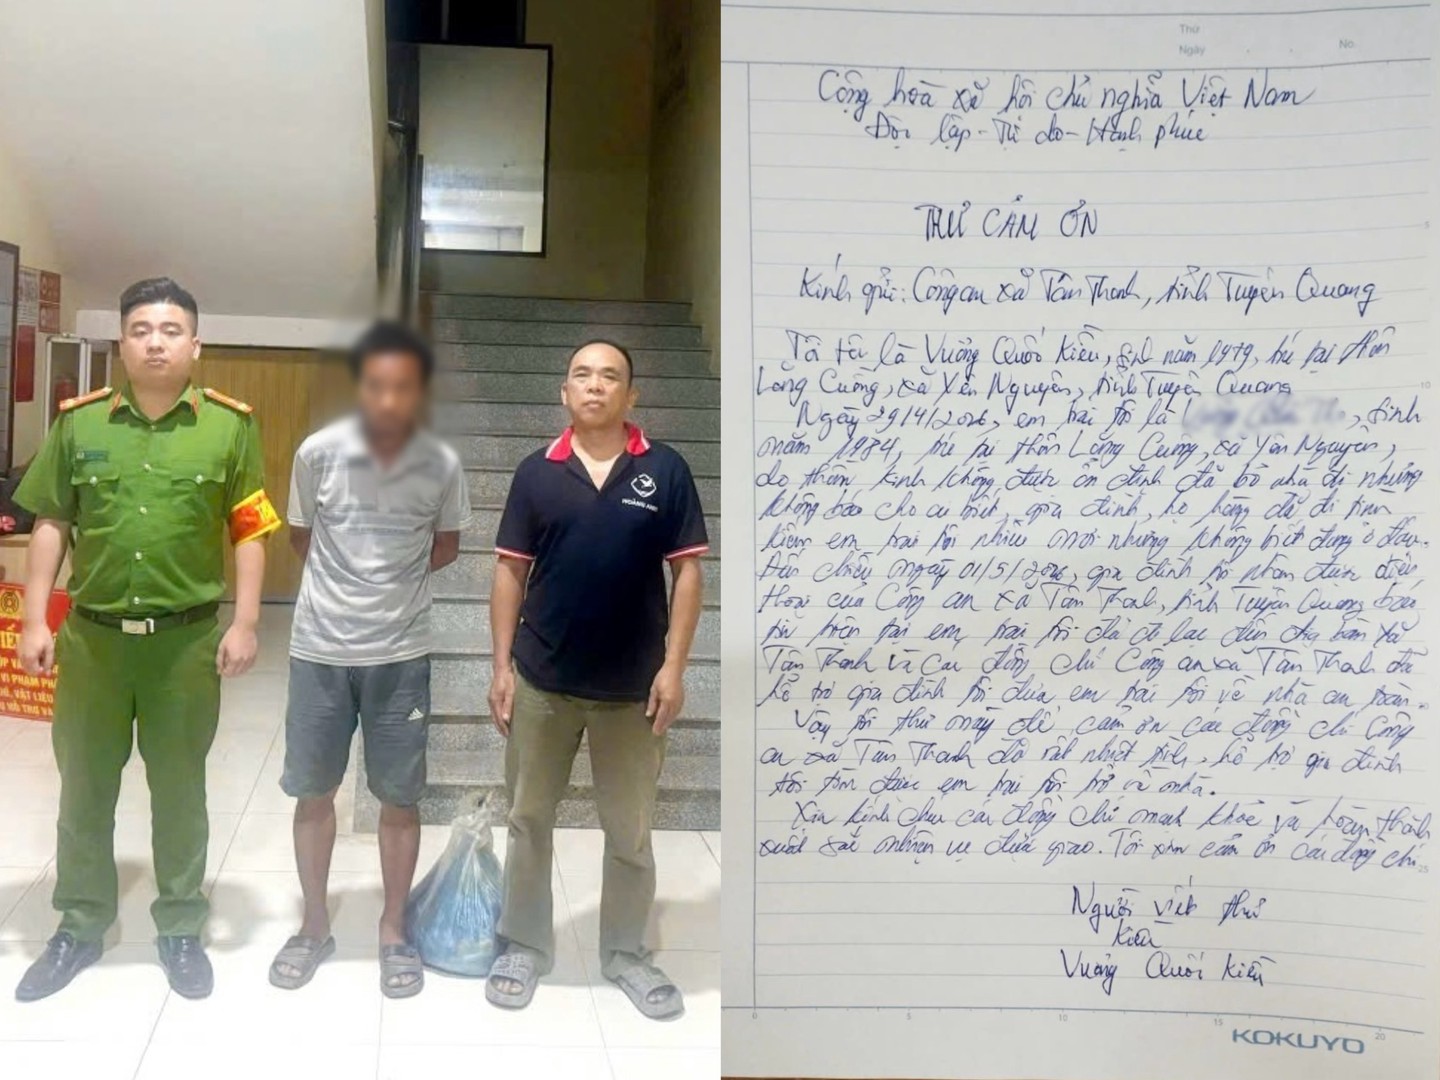 HOÀNG ANH
Thứ
Ngày
No.
Cộng hoà xã hội chủ nghĩa Việt Nam
Độc lập - Tự do - Hạnh phúc
THƯ CẢM ƠN
Kính gửi: Công an xã Tân Thanh, tỉnh Tuyên Quang
Tôi tên là Vương Quốc Kiều, sinh năm 1979, trú tại thôn
Lăng Cuông, xã Yên Nguyên, tỉnh Tuyên Quang
Ngày 29/4/2026, em trai tôi là , sinh
năm 1984, trú tại thôn Lăng Cuông, xã Yên Nguyên,
do thần kinh không được ổn định đã bỏ nhà đi nhưng
không báo cho ai biết, gia đình, họ hàng đã đi tìm
kiếm em trai tôi nhiều nơi nhưng không biết đang ở đâu.
Đến chiều ngày 01/5/2026, gia đình tôi nhận được điện
thoại của Công an xã Tân Thanh, tỉnh Tuyên Quang báo
tin hiện tại em trai tôi đã đi lạc đến địa bàn xã
Tân Thanh và các đồng chí Công an xã Tân Thanh đã
hỗ trợ gia đình tôi đưa em trai tôi về nhà an toàn.
Vậy tôi thư này để cảm ơn các đồng chí Công
an xã Tân Thanh đã rất nhiệt tình, hỗ trợ gia đình
tôi tìm được em trai tôi trở về nhà.
Xin kính chúc các đồng chí mạnh khoẻ và hoàn thành
xuất sắc nhiệm vụ được giao. Tôi xin cảm ơn các đồng chí
Người viết thư
Kiều
Vương Quốc Kiều
5
10
25
0
5
10
15
20
KOKUYO